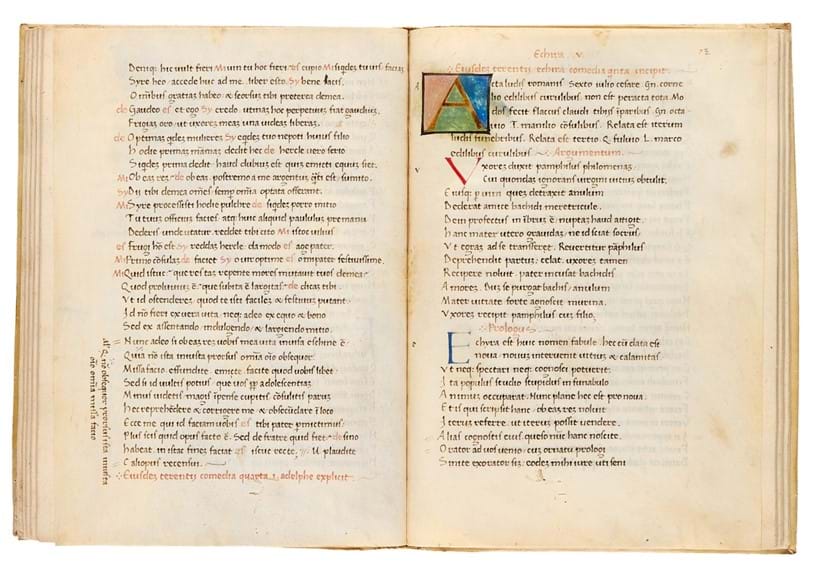 Deniq; hic vult fieri Mi vin tu hoc fieri es cupio Mi siqdez tu vis facias
Syre heo accede huc ad me liber esto Sy bene facis
Omibus gratias habeo & seorsus tibi preterea demea
de Gaudeo es et ego Sy credo utinaz hoc perpetuuz fiat gaudiuz
Frigiaz oro ut uxorez meaz una videaz liberaz
de Optimaz qdez mulierez Sy eqdez tuo nepoti huius filio
Hodie prima mamaz dedit hec de hercle vero serio
Siqdez prima dedit haud dubiuz est quiz emitti equuz siet
Mi Ob eaz rez de ob eaz postremo a me argentuz qti est sumito
Sy Dii tibi demea omes semp omia optata offerant
Mi Syre processisti hodie pulchre de siqdez porro mitio
Tu tuuz officiuz facies atq; huic aliquid paululuz premanu
Dederis unde utatur reddet tibi cito Mi istoc vilius
es frugi ho est Sy reddaz hercle da modo es age pater
Mi Primo cosulaz de faciet Sy o vir optime es o mi pater festivissime
Mi Quid istuc que res taz repente mores mutavit tuos demea
Quod proluviuz e que subita e largitas de dicaz tibi
Vt id ostenderez quod te isti facilez & festivuz putant
Id no fieri ex vera vita neq; adeo ex equo & bono
Sed ex assentando indulgendo & largiendo mitio
Nunc adeo si ob eaz rez vobis mea vita invisa eschine e
Quia no ista iniusta prorsus omia oio obsequor
Missa facio effundite emite facite quod vobis libet
Sed si id vultis potius que vos pp adolescentiaz
Minus videtis magis ipense cupitis cosulitis parum
Hec reprehedere & corrigere me & obsecudare i loco
Ecce me qui id faciam vobis es tibi pater pmittimus
Plus scis quid opus facto e Sed de fratre quid fiet de sino
habeat in istac finez faciat es istuc recte V plaudite
Caliopius recensui
Eiusdez terentii comedia quarta adelphe explicit
al' q no obsequor prorsus ista iniusta
oio omia missa facio
Echira V
Eiusdez terentii echira comedia qnta incipit
Acta ludis romanis Sexto iulio cesare gn corne
lio edilibus curulibus non est peracta tota Mo
dos fecit flaccus claudi tibiis iparibus gn octa
vio T manlio cosulibus Relata est iterum
ludis funebribus Relata est tertio Q fulvio L marco
edilibus curulibus Argumentum
Vxorez duxit pamphilus philomenaz
Cui quondaz ignorans virgini vitiuz obtulit
Eiusq; p vim quez detraxit anulum
Dederat amice bachidi meretricule
Dein profectus in ibruz e nuptaz haud attigit
Hanc mater utero gravidaz ne id sciat socrus
Vt egraz ad se transferet Revertitur paphilus
Deprehendit partuz celat uxorez tamen
Recipere noluit pater incusat bachidis
Amorez Duz se purgat bachis anulum
Mater vitiate forte agnoscit mirina
Vxorez recipit pamphilus cuz filio
Prologus
Echyra est huic nomen fabule hec cu data est
nova novuz intervenit vitiuz & calamitas
Vt neq; spectari neq; cognosci potuerit
Ita populus studio stupidus in funabulo
Animuz occuparat Nunc plane hec est pro nova
Et is qui scripsit hanc ob eaz rez noluit
Iteruz referre ut iteruz possit vendere
Alias cognostis eius queso nunc hanc noscite
Orator ad vos venio cuz ornatu prologi
Sinite exorator siz eodez mihi iure uti seni